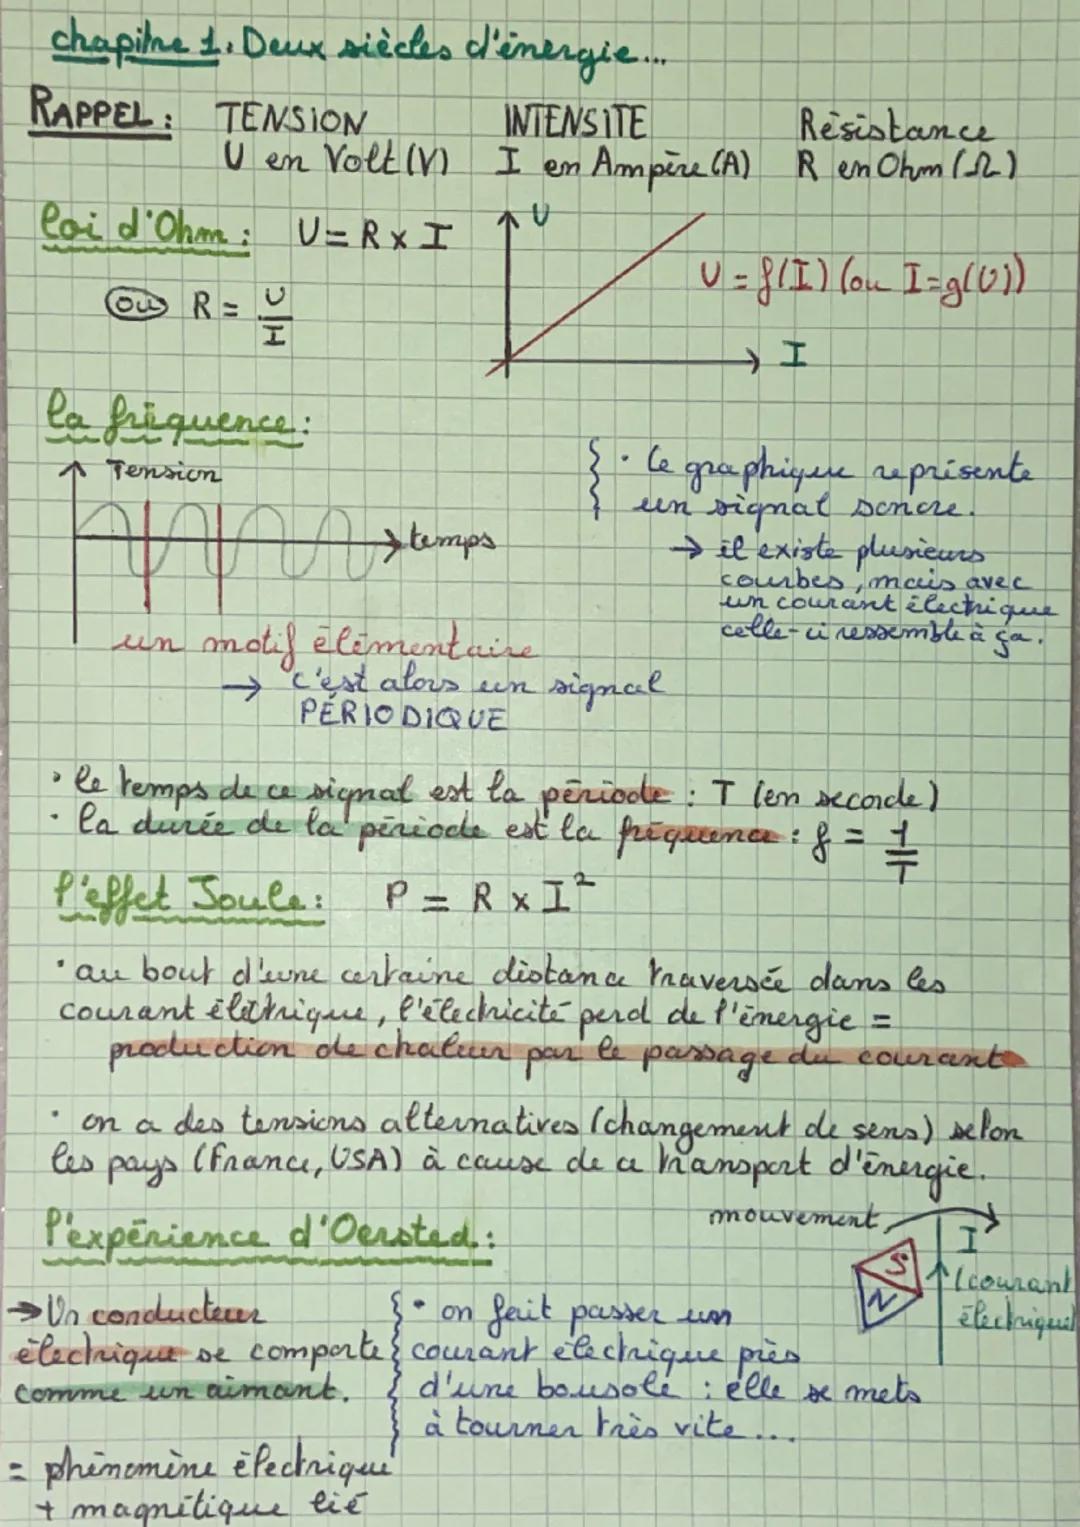 chapitre 1. Deux siècles d'énergie...
RAPPEL : TENSION INTENSITE Résistance
U en Volt (V) I en Ampère (A) R en Ohm (Ω)
loi d'Ohm : U = R x I
U
U = f(I) (ou I=g(U))
ou R = U/I
I
la fréquence :
Tension
temps
• le graphique représente
un signal sonore.
→ il existe plusieurs
courbes, mais avec
un courant électrique
celle-ci ressemble à ça.
un motif élémentaire
→ c'est alors un signal
PÉRIODIQUE
• le temps de ce signal est la période : T (en seconde)
• la durée de la période est la fréquence : f = 1/T
l'effet Joule : P = R x I²
• au bout d'une certaine distance traversée dans les
courant électrique, l'électricité perd de l'énergie =
production de chaleur par le passage du courant
• on a des tensions alternatives (changement de sens) selon
les pays (France, USA) à cause de ce transport d'énergie.
l'expérience d'Oersted :
mouvement
S
N
I
(courant
électrique)
→ Un conducteur
électrique se comporte
comme un aimant.
= phénomène électrique
+ magnétique lié
• on fait passer un
courant électrique près
d'une bousole : elle se mets
à tourner très vite...